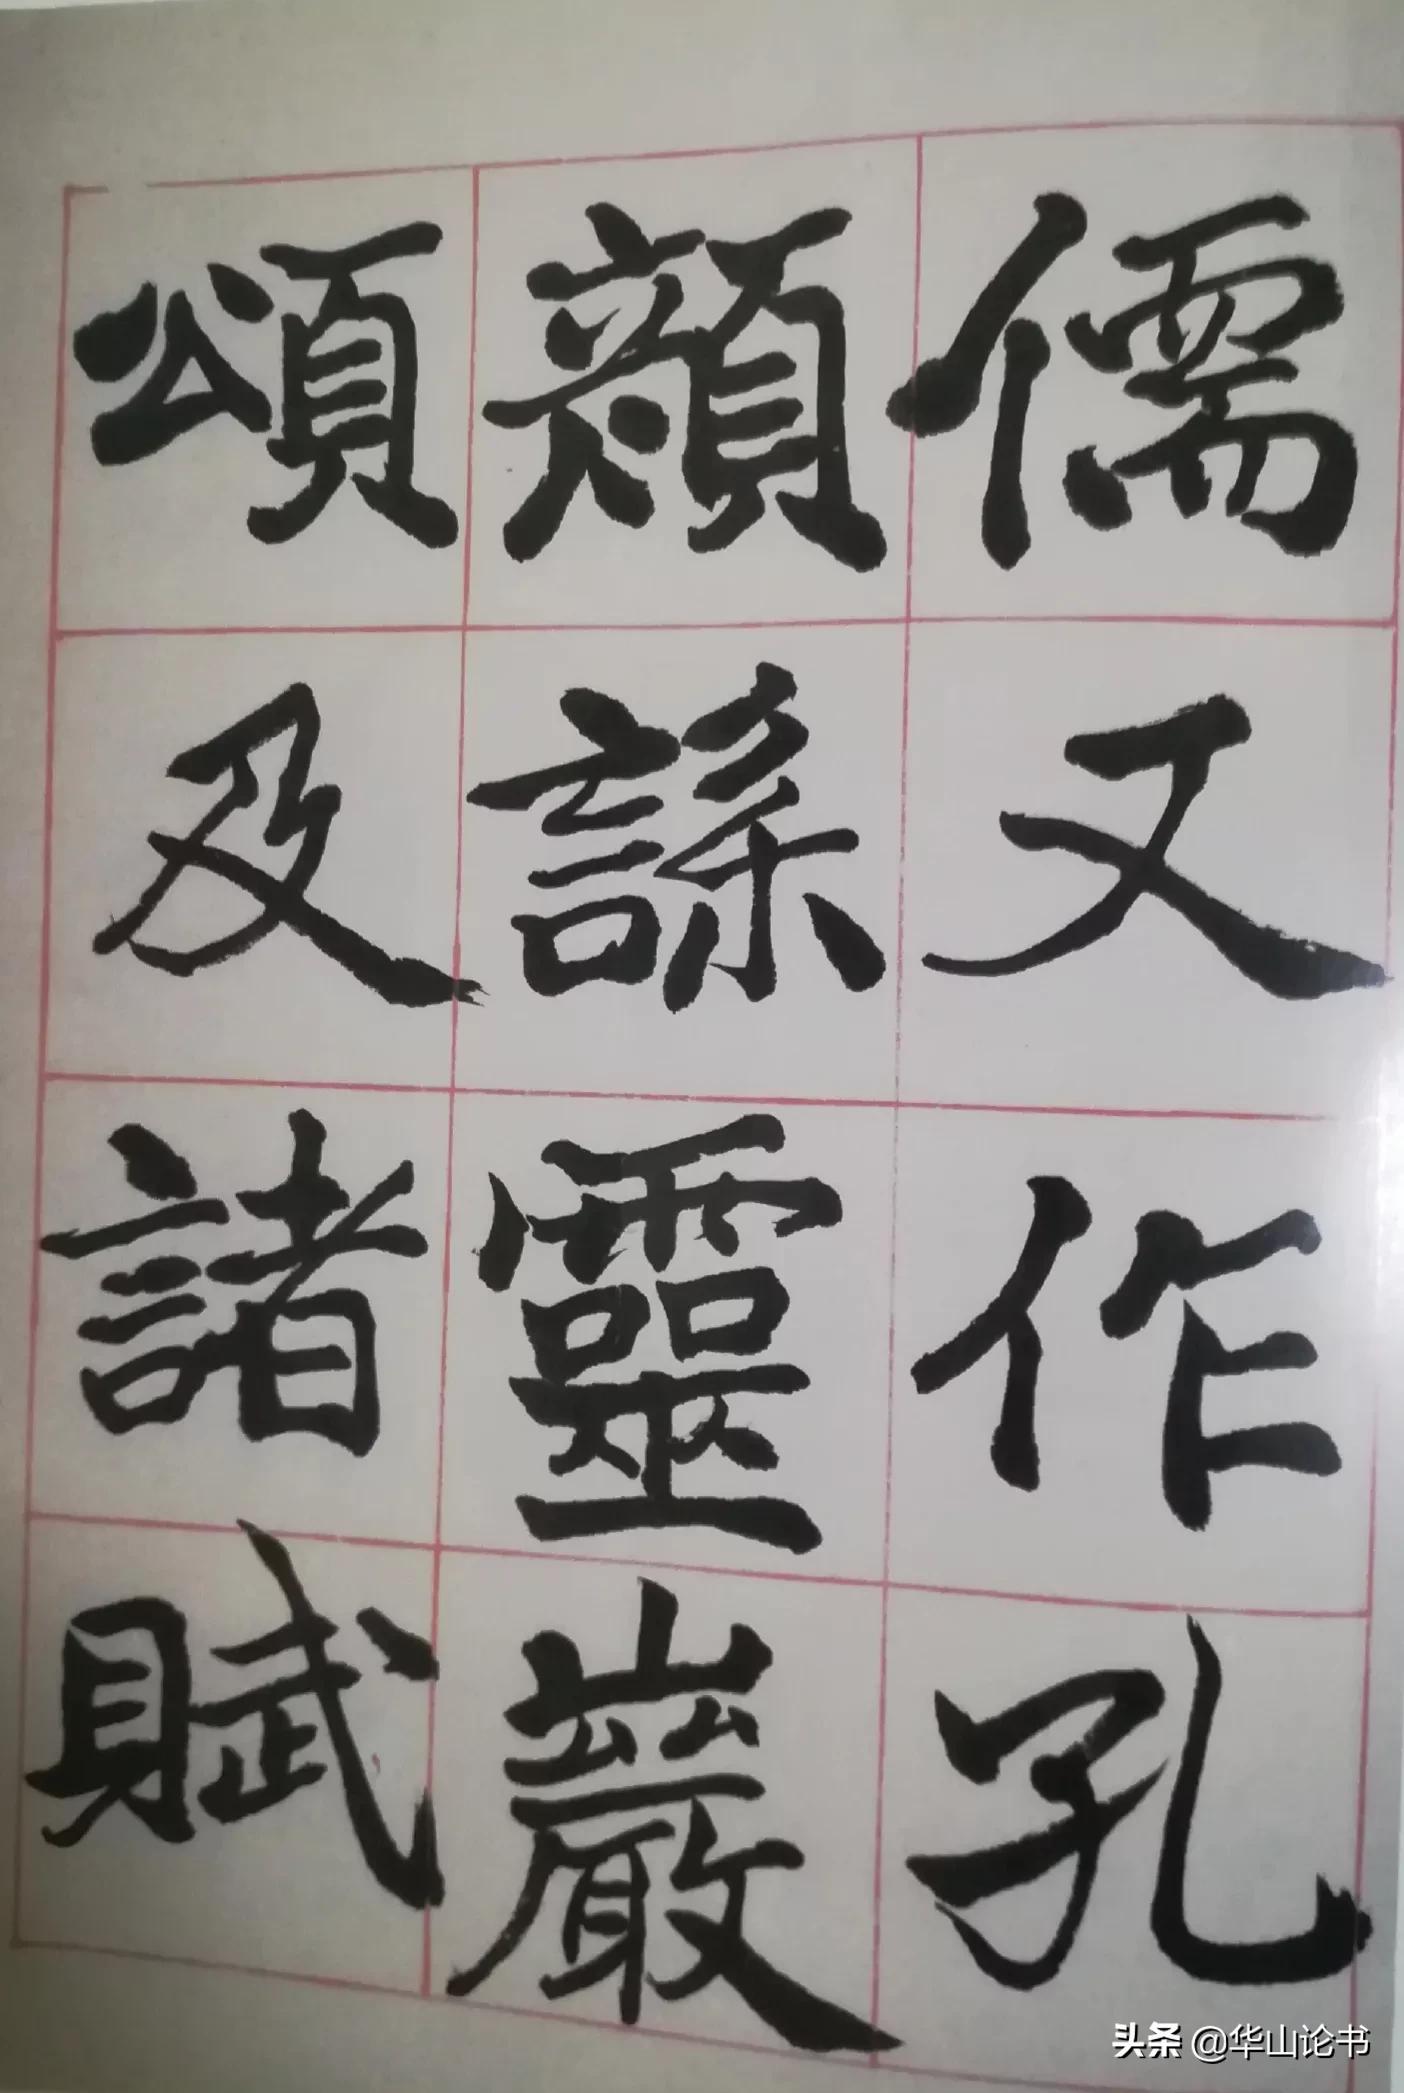 儒又作孔
顏誄靈巖
頌及諸賦
头条 @华山论书